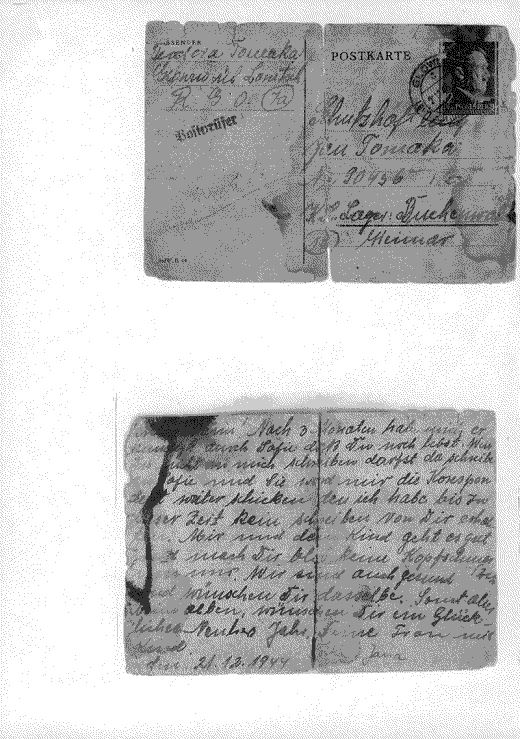 ABSENDER
Teodora Tomaka
POSTKARTE
Postprüfer
Schutzhäftling
Jan Tomaka
Nr 30456
K.L. Lager: Buchenwald
Weimar
Nach 3 Monaten hab
durch Sofie daß Du noch lebst. Wen
nicht an mich schreiben darfst da schreibe
Sofie und Sie wird mir die Korespon
denz weiter schicken, den ich habe bis zu
dieser Zeit kein schreiben von Dir erhal
Mir und dem Kind geht es gut
mach Dir blos keine Kopfschmer
um uns. Wir sind auch gesund
und wünschen Dir dasselbe. Sonst alles
beim alten, wünschen Dir ein Glück-
liches Neues Jahr, Deine Frau mit
Kind
den 21.12.1944